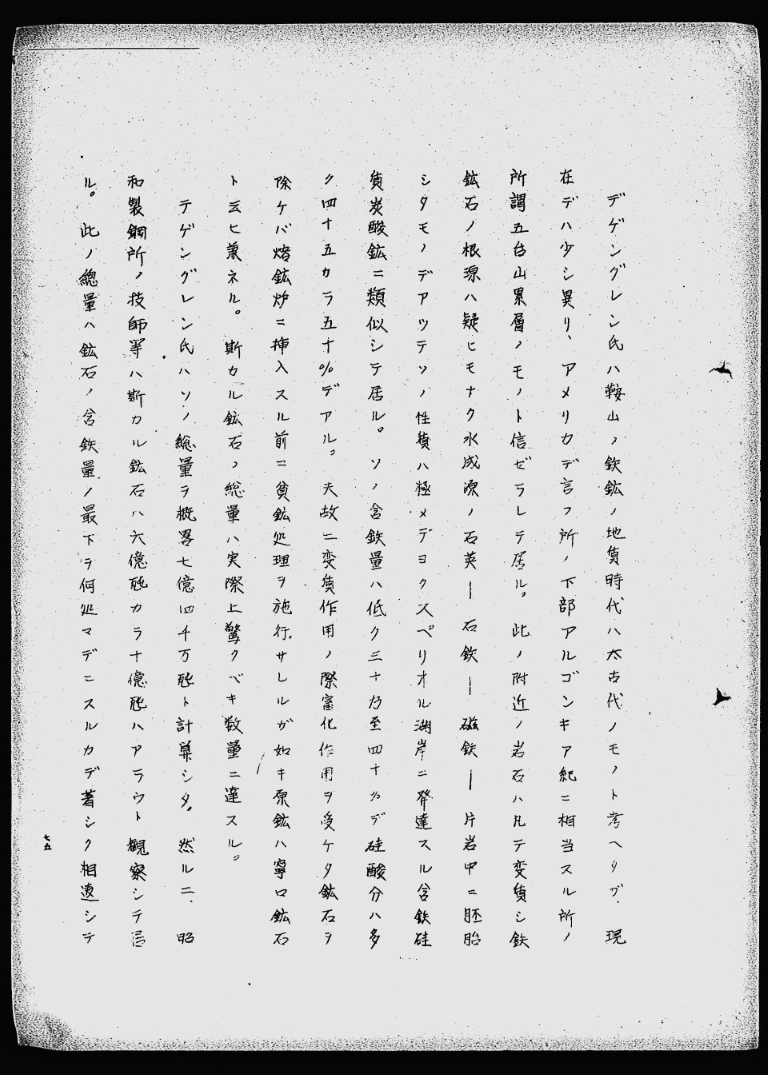 デゲングレン氏ハ鞍山ノ鉄鉱ノ地質時代ハ太古代ノモノト考ヘタガ、現
在デハ少シ異リ、アメリカデ言フ所ノ下部アルゴンキア紀ニ相当スル所ノ
所謂五台山累層ノモノト信ゼラレテ居ル。此ノ附近ノ岩石ハ凡テ変質シ鉄
鉱石ノ根源ハ疑ヒモナク水成源ノ石英―石鉄―磁鉄―片岩中ニ胚胎
シタモノデアツテソノ性質ハ極メテヨクスペリオル湖岸ニ発達スル含鉄硅
質炭酸鉱ニ類似シテ居ル。ソノ含鉄量ハ低ク三十乃至四十%デ硅酸分ハ多
ク四十五カラ五十%デアル。夫故ニ変質作用ノ際富化作用ヲ受ケタ鉱石ヲ
除ケバ熔鉱炉ニ挿入スル前ニ貧鉱処理ヲ施行サレルガ如キ原鉱ハ寧ロ鉱石
ト云ヒ兼ネル。斯カル鉱石ノ総量ハ実際上驚クベキ数量ニ達スル。
テゲングレン氏ハソノ総量ヲ概畧七億四千万瓲ト計算シタ。然ルニ、昭
和製鋼所ノ技師等ハ斯カル鉱石ハ六億瓲カラ十億瓲ハアラウト観察シテ居
ル。此ノ総量ハ鉱石ノ含鉄量ノ最下ヲ何処マデニスルカデ著シク相違シテ
七五